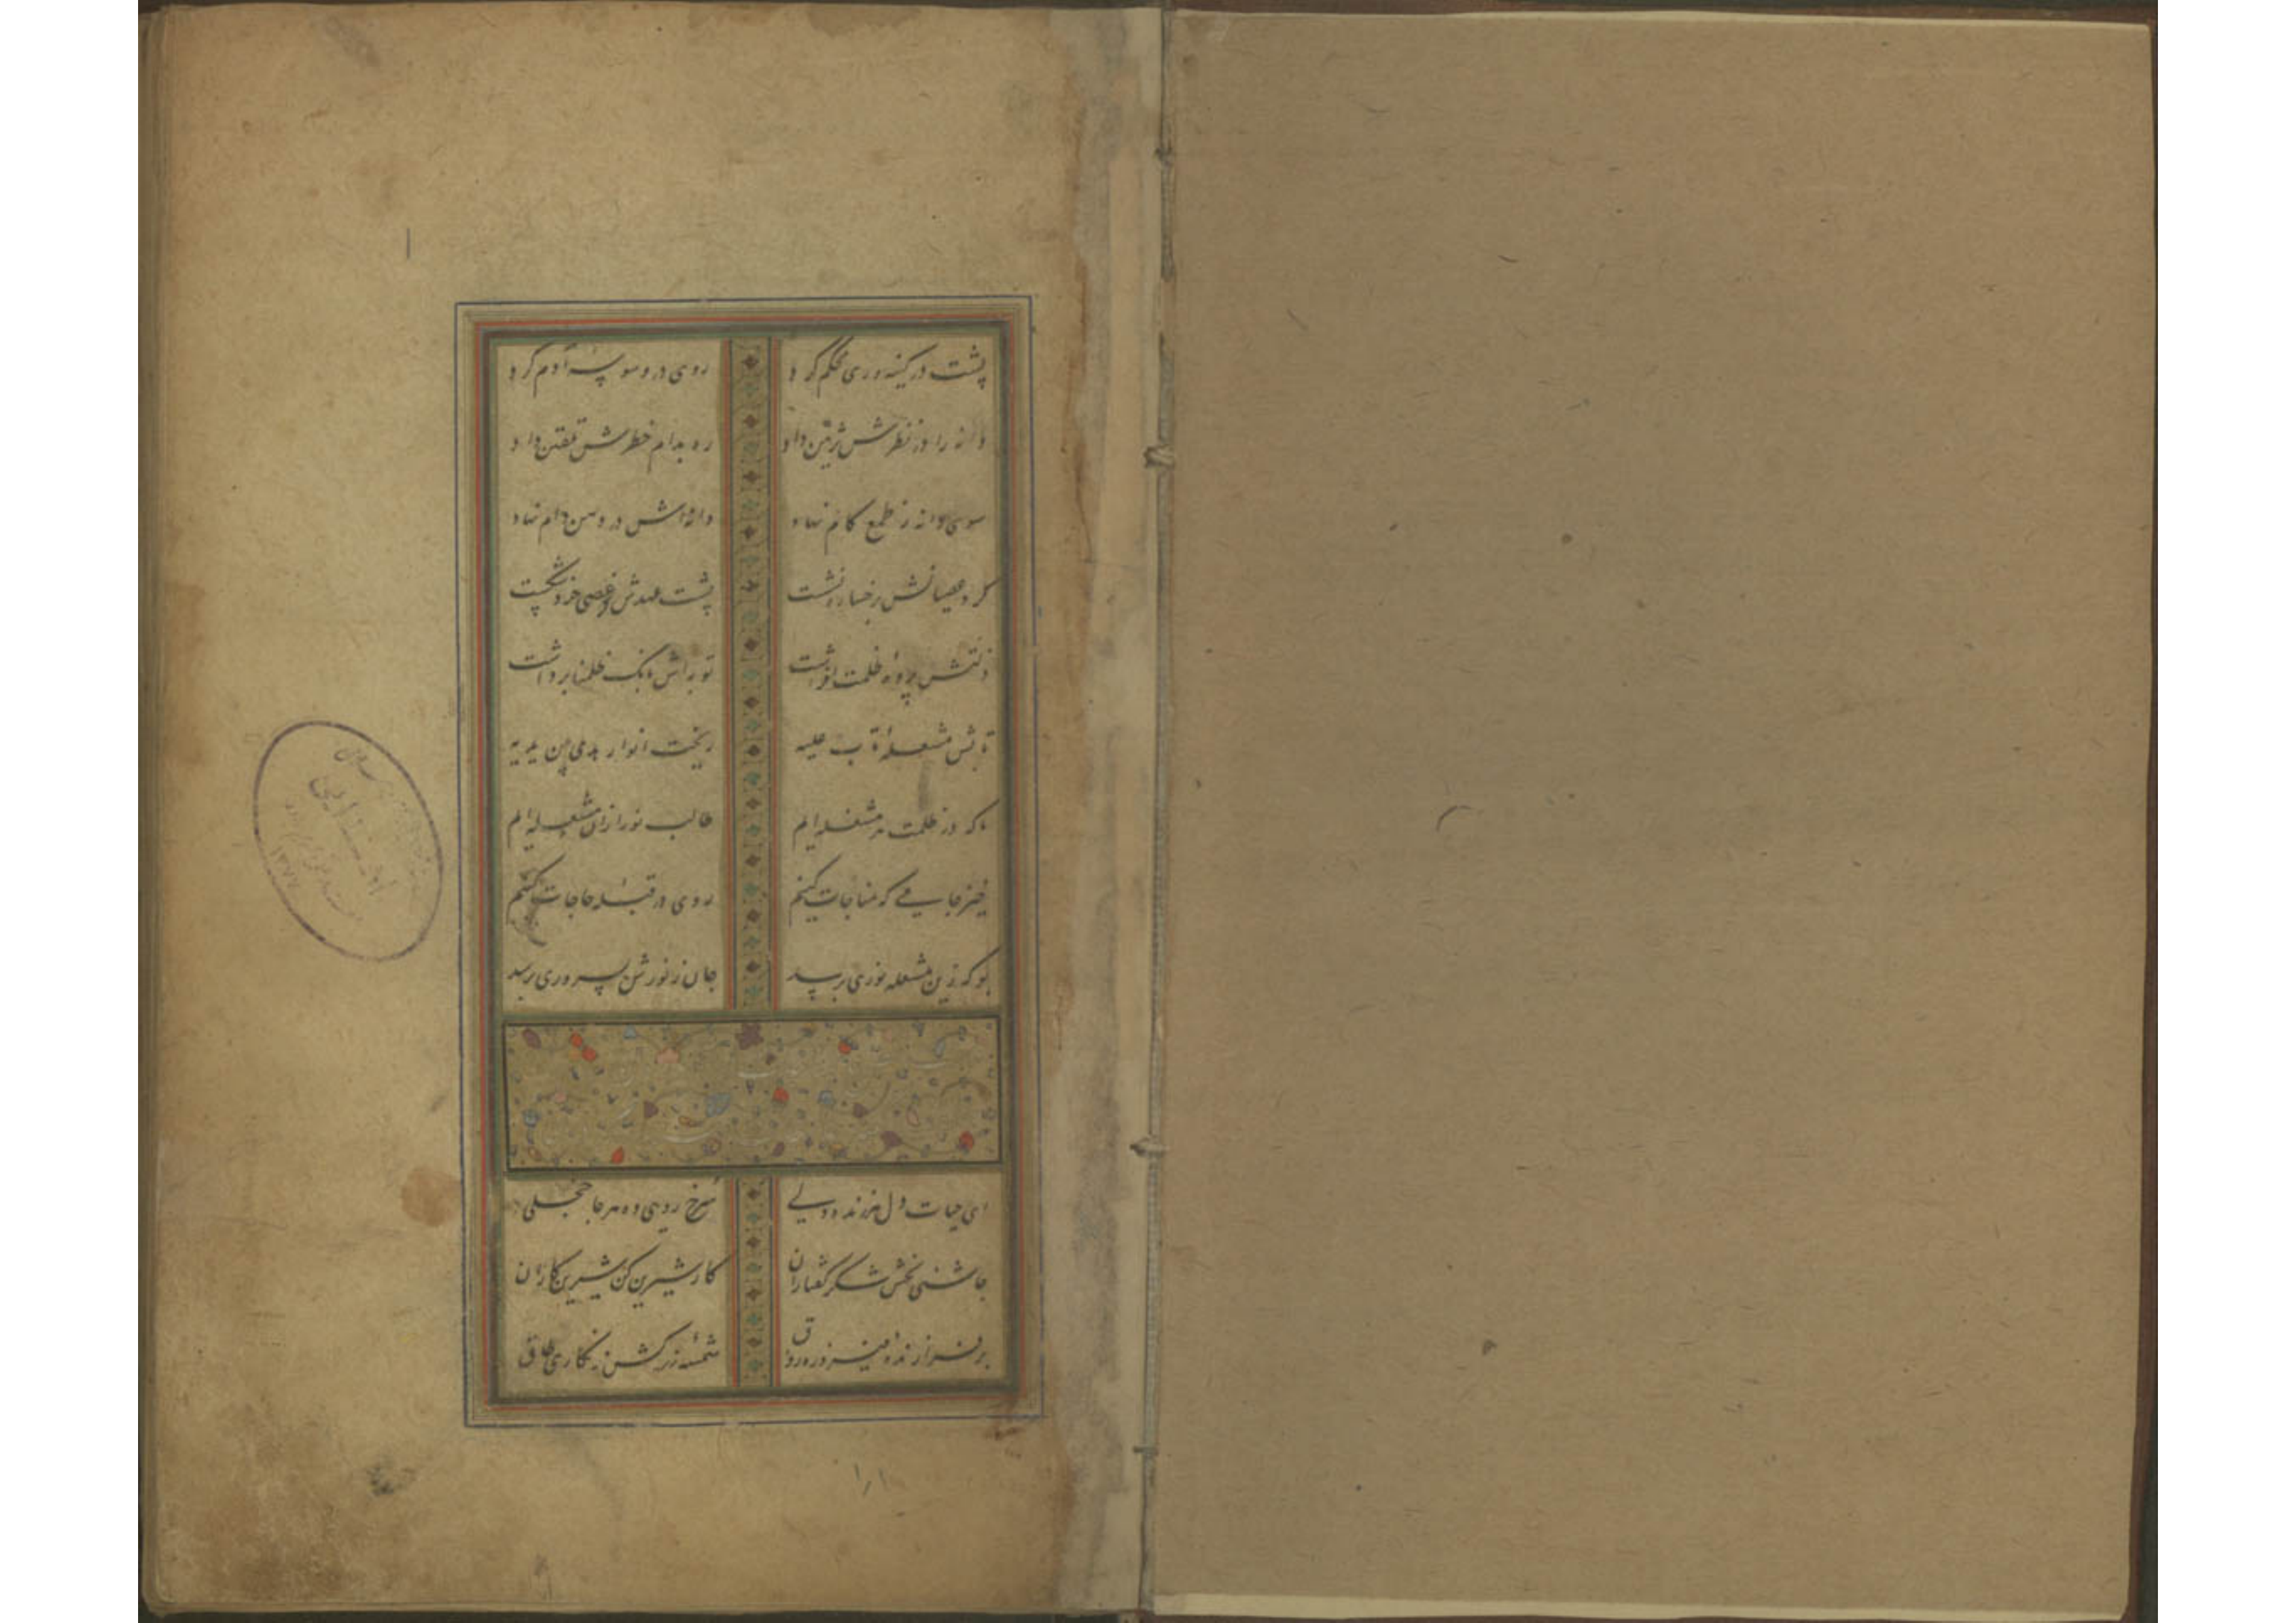 پشت در کینه وری محکم کرد روی در وسوسه آدم کرد
دانه را در نظرش تزیین داد ره بدام خطرش تلقین داد
سوی دانه ز طمع کام نهاد دانه اش در دهن دام نهاد
گرد عصیانش برخسار نشست پشت عهدش ز عصی خرد شکست
زلتش پرده ظلمت افراشت توبه اش بانگ ظلمنا برداشت
تابش مشعله تاب علیه ریخت انوار هدی بین یدیه
ما که در ظلمت هر مشغله ایم طالب نور ازان مشعله ایم
خیز جامی که مناجات کنیم روی در قبله حاجات کنیم
بو که زین مشعله نوری برسد جان ز نورش بسروری برسد
ای حیات دل هر زنده دلی سرخ رویی ده هر جا خجلی
چاشنی بخش شکر گفتاران کار شیرین کن شیرین کاران
بر فرازنده فیروزه رواق شمسه زرکش زنگاری طاق
۱۳۷۷